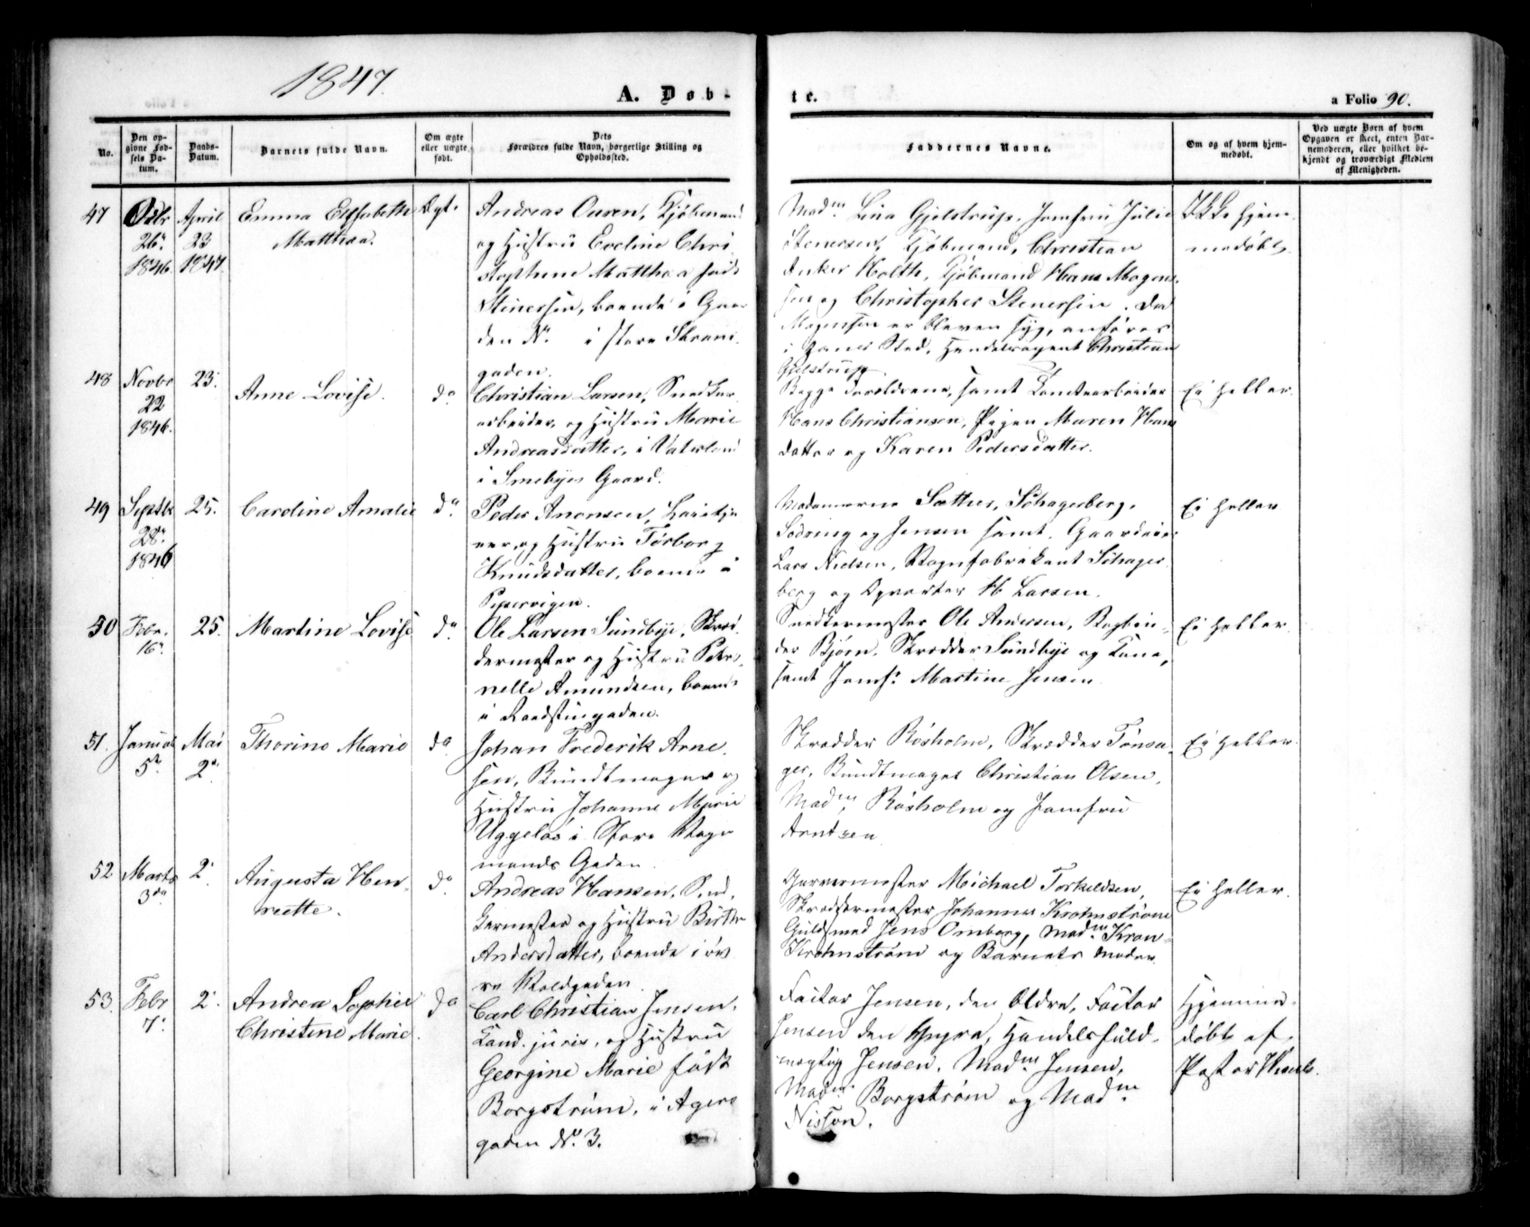 1847.
A. Døb-
te.
a Folio 90.
No.
Den op-
givne Fød-
sels Da-
tum.
Daabs-
Datum.
Barnets fulde Navn.
Om ægte
eller uægte
født.
Dets
Forældres fulde Navn, borgerlige Stilling og
Opholdssted.
Faddernes Navne.
Om og af hvem hjem-
medøbt.
Ved uægte Børn af hvem
Opgaven er skeet, enten Bar-
nemoderen, eller hvilket be-
kjendt og troværdigt Medlem
af Menigheden.
47
Octbr
26
1846.
April
23
1847.
Emma Elisabeth
Matthea.
Ægt.
Andreas Kjøbmand
og Hustru Eveline Chri
stophine Matthea født
Stenersen, boende i Gaar
den No. i store Strand
gaden.
Madm. Lina Gjelstrup, Jomfru Julie
Stenersen, Kjøbmand, Christian
Holth, Kjøbmand Hans Mogens-
sen og Christopher Stenersen. Da
Mogensen er bleven syg, anføres
i hans Sted, Handelsagent Christian
Gjelstrup.
Ikke hjem
medøbt.
48
Novbr
22
1846.
23.
Anne Lovise.
do
Christian Larsen, Snedker
arbeider, og Hustru Marie
Andreasdatter, i Vaterland
i Smebyes Gaard.
Begge Forældrene, samt
Hans Christiansen, Pigen Maren Hans
datter og Karen Pedersdatter.
Ei heller.
49
Septbr
28
1846
25.
Caroline Amalie
do.
Peder Anonsen,
og Hustru Torborg
Knudsdatter, boende i
Pipervigen.
Madamerne Sæther, Schagerberg,
Sodring og Jensen samt Gaardeier
Lars Nielsen, Vognfabrikant Schager
berg og H Larsen.
Ei heller
50
Febr.
16.
25.
Martine Lovise
do.
Ole Larsen Sundbye, Skræd
dermester og Hustru Peter
nelle Amundsen, boende
i Raadstugaden.
Snedkermester Ole Andersen, Bogbin-
der Bjørn, Skrædder Sundbye og Kone,
samt Jomf. Martine Jensen
Ei heller.
51.
Januar
5
Mai
2.
Thorine Marie
do
Johan Frederik Arne
sen, Bundtmager og
Hustru Johanne Marie
Uggelos i Store Vogn
mands Gaden.
Skrædder Røsholm, Skrædder Tønsa
ger, Bundtmager Christian Olsen,
Madm. Røsholm og Jomfru
Arntzen
Ei heller.
52
Marts
3
2.
Augusta Hen
riette.
do.
Andreas Hansen, Sned
kermester og Hustru Birthe
Andersdatter, boende i øv
re Voldgaden.
Garvermester Michael Torkeldsen,
Skræddermester Johannes Krohmstrøm
Guldsmed Jens Omberg, Madm.
Krohmstrøm og Barnets Moder.
Ei heller.
53.
Febr
7.
2.
Andrea Sophie
Christine Marie.
do
Carl Christian Jensen,
Kand. juris, og Hustru
Georgine Marie født
Borgstrøm, i Agers
gaden No. 3.
Factor Jensen, den Ældre, Factor
Jensen den Yngre, Handelsfuld-
mægtig Jensen, Madm Jensen,
Madm. Borgstrøm og Madm
Nisson.
Hjemme-
døbt af
Pastor